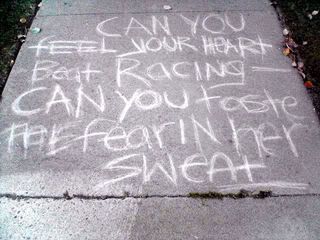 CAN YOU
FEEL YOUR HEART
Beat RACING
CAN YOU taste
THE fear IN her
SWEAT